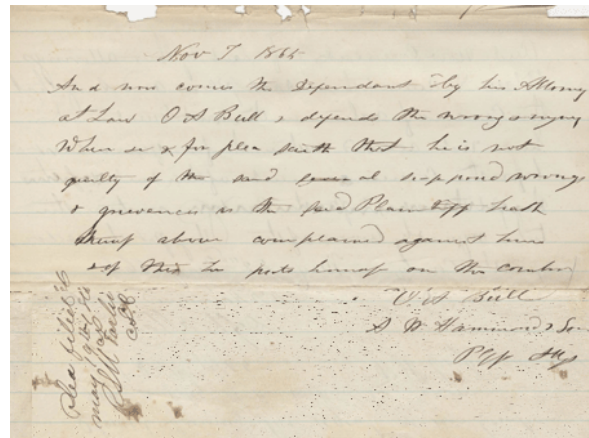 Nov 7 1865
And now comes the Defendant by his Attorney
at Law O A Bull & defends the wrong & injury
When &c & for plea saith that he is not
guilty of the said several supposed wrongs
& grievences as the said Plaintiff hath
above complained against him
& of this he puts himself on the country
O A Bull
D W Hammond & Son
Plff Atty
Plea filed in
may 9th